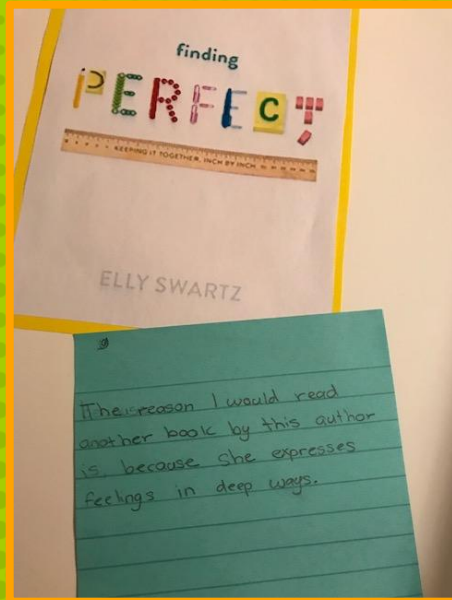 finding
PERFECT
KEEPING IT TOGETHER, INCH BY INCH
ELLY SWARTZ
The reason I would read
another book by this author
is because she expresses
feelings in deep ways.